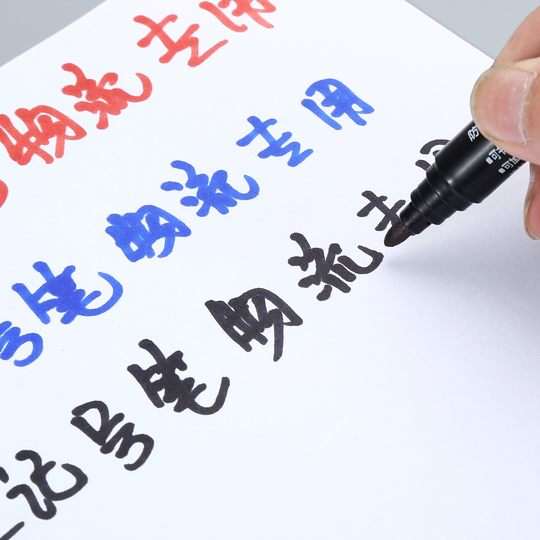 物流专用
号笔 物流专用
记号笔 物流专用